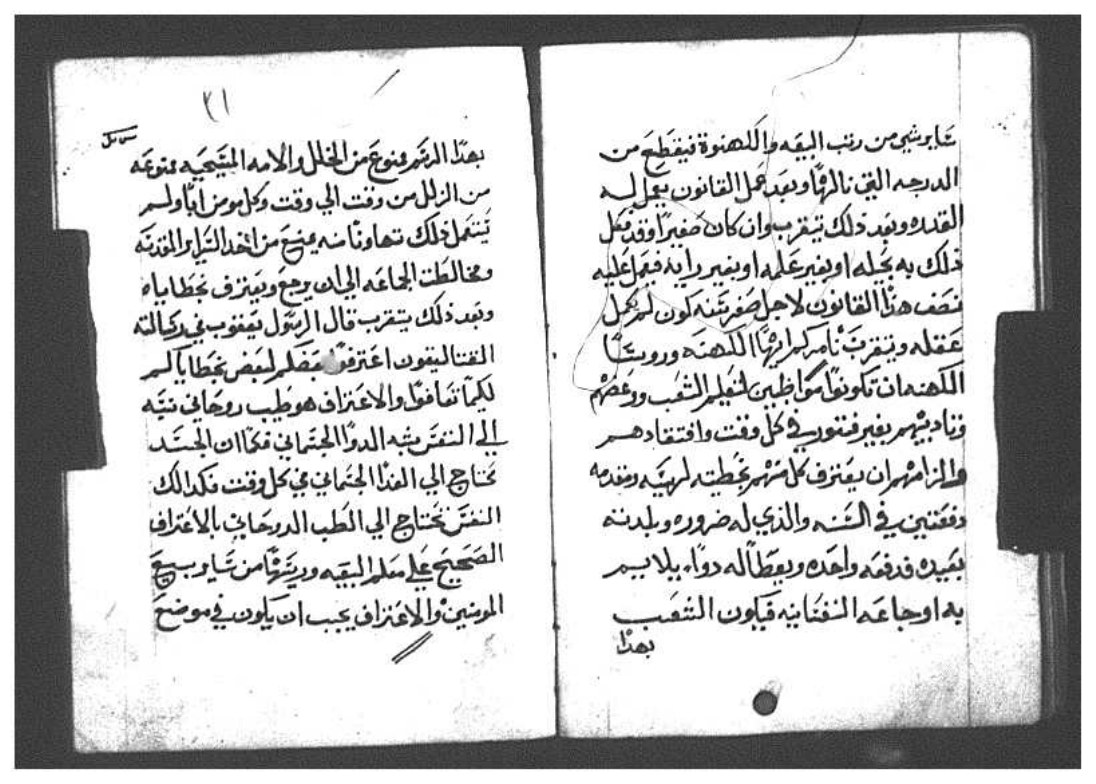 شا برشي من رتب البيعه والكهنوة فيقطع من
الدرجه التي نالها وبعد عمل القانون يعمل له
القدره وبعد ذلك يتقرب وان كان صغيرا وقد فعل
ذلك به بجهله او بغير علمه او بغير رايه فيعمل عليه
نصف هذا القانون لاجل صغر سنه كون لم يكمل
عقله ويتقرب نامركم ايها الكهنه وروسا
الكهنه ان تكونوا مواظبين لتعليم الشعب ووعضهم
وتاديبهم بغير فتور في كل وقت وافتقادهم
والزامهم ان يعترف كل منهم بخطيته لربه ومقدمه
دفعتين في السنه والذي له ضروره وبلدته
بعيده فدفعه واحده ويعطا له دواء يلايم
به اوجاعه النفسانيه فيكون الشعب
بهذا
٣١
بهذا الرسم ممنوع من الخلل والامه المسيحيه ممنوعه
من الزلل من وقت الي وقت وكل مومن ابا ولم
يتعمل ذلك تهاونا منه يمنع من اخد السراير المقدسه
ومخالطت الجماعه الي ان يرجع ويعترف بخطاياه
وبعد ذلك يتقرب قال الرسول يعقوب في رسالته
القتاليقون اعترفوا بعضكم لبعض بخطاياكم
لكيما تعافوا والاعتراف هو طب روحاني نسبه
الي النفس شبه الدوا الجسماني فكما ان الجسد
يحتاج الي الغدا الجسماني في كل وقت فكدالك
النفس تحتاج الي الطب الروحاني بالاعتراف
الصحيح علي معلم البيعه ورييسها من ساير بيع
المومنين والاعتراف يجب ان يكون في موضع